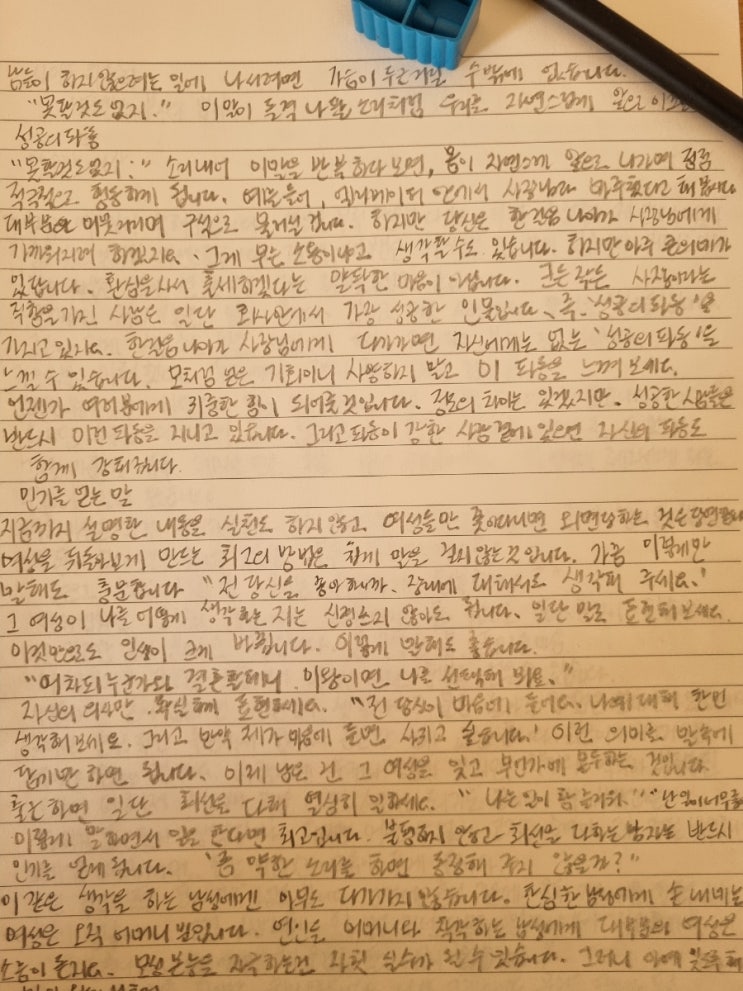 남들이 하지 않으려는 일에 나서려면 가슴이 두근거릴 수밖에 없습니다.
"못할것도 없지." 이 말이 돌격 나팔 소리처럼 우리를 자연스럽게 앞으로
성공의 파동
"못할것도 없지." 소리내어 이 말을 반복하다 보면, 몸이 자연스레 앞으로 나가며 점점
적극적으로 행동하게 됩니다. 예를 들어, 엘리베이터 안에서 사장님과 마주쳤다고 해봅시다
대부분은 머뭇거리며 구석으로 물러설 겁니다. 하지만 당신은 한 걸음 나아가 사장님에게
가까워지려 하겠지요. 그게 무슨 소용이냐고 생각할 수도 있습니다. 하지만 아주 큰 의미가
있답니다. 환심을 사서 출세하겠다는 말뚝한 마음이 아닙니다. 크든 작든 사장이라는
직함을 가진 사람은 일단 회사안에서 가장 성공한 인물입니다. 즉, '성공의 파동'을
가지고 있지요. 한걸음 나아가 사장님에게 다가가면 자신에게는 없는 '성공의 파동'을
느낄 수 있습니다. 모처럼 얻은 기회이니 사양하지 말고 이 파동을 느껴 보세요.
언젠가 여러분에게 귀중한 힘이 되어줄것입니다. 정도의 차이는 있겠지만, 성공한 사람들은
반드시 이런 파동을 지니고 있습니다. 그리고 파동이 강한 사람 곁에 있으면 자신의 파동도
함께 강해집니다.
인기를 얻는 말
지금까지 설명한 내용을 실천도 하지 않고 여성들만 쫓아다니면 외면당하는 것은 당연합니다
여성을 뒤돌아보게 만드는 최고의 방법은 쉽게 말을 걸지 않는 것입니다. 가끔 이렇게만
말해도 충분합니다 "전 당신을 좋아하니까, 장래에 대해서도 생각해 주세요."
그 여성이 나를 어떻게 생각하는 지는 신경쓰지 않아도 됩니다. 일단 말로 표현해 보세요.
이것만으로도 인생이 크게 바뀝니다. 이렇게 말해도 좋습니다.
"어차피 누군가와 결혼할테니, 이왕이면 나를 선택해 줘요."
자신의 의사만 확실하게 표현하세요. "전 당신이 마음에 들어요. 나에 대해 한번
생각해 보세요. 그리고 만약 제가 마음에 들면 사귀고 싶습니다.' 이런 의미를 말속에
담기만 하면 됩니다. 이제 남은 건 그 여성을 잊고 무언가에 몰두하는 것입니다
출근하면 일단 최선을 다해 열심히 일하세요. "나는 일이 참 즐거워." "난 일이 너무
이렇게 말하면서 일을 한다면 최고입니다. 불평하지 않고 최선을 다하는 남자는 반드시
인기를 얻게 됩니다. '좀 약한 소리를 하면 동정해 주지 않을까?"
이 같은 생각을 하는 남성에겐 아무도 다가가지 않습니다. 한심한 남성에게 손 내미는
여성은 오직 어머니 뿐입니다. 연인을 어머니와 착각하는 남성에게 대부분의 여성은
소름이 돋지요. 모성 본능을 자극하는건 자칫 실수가 될 수 있습니다. 그러니 아예